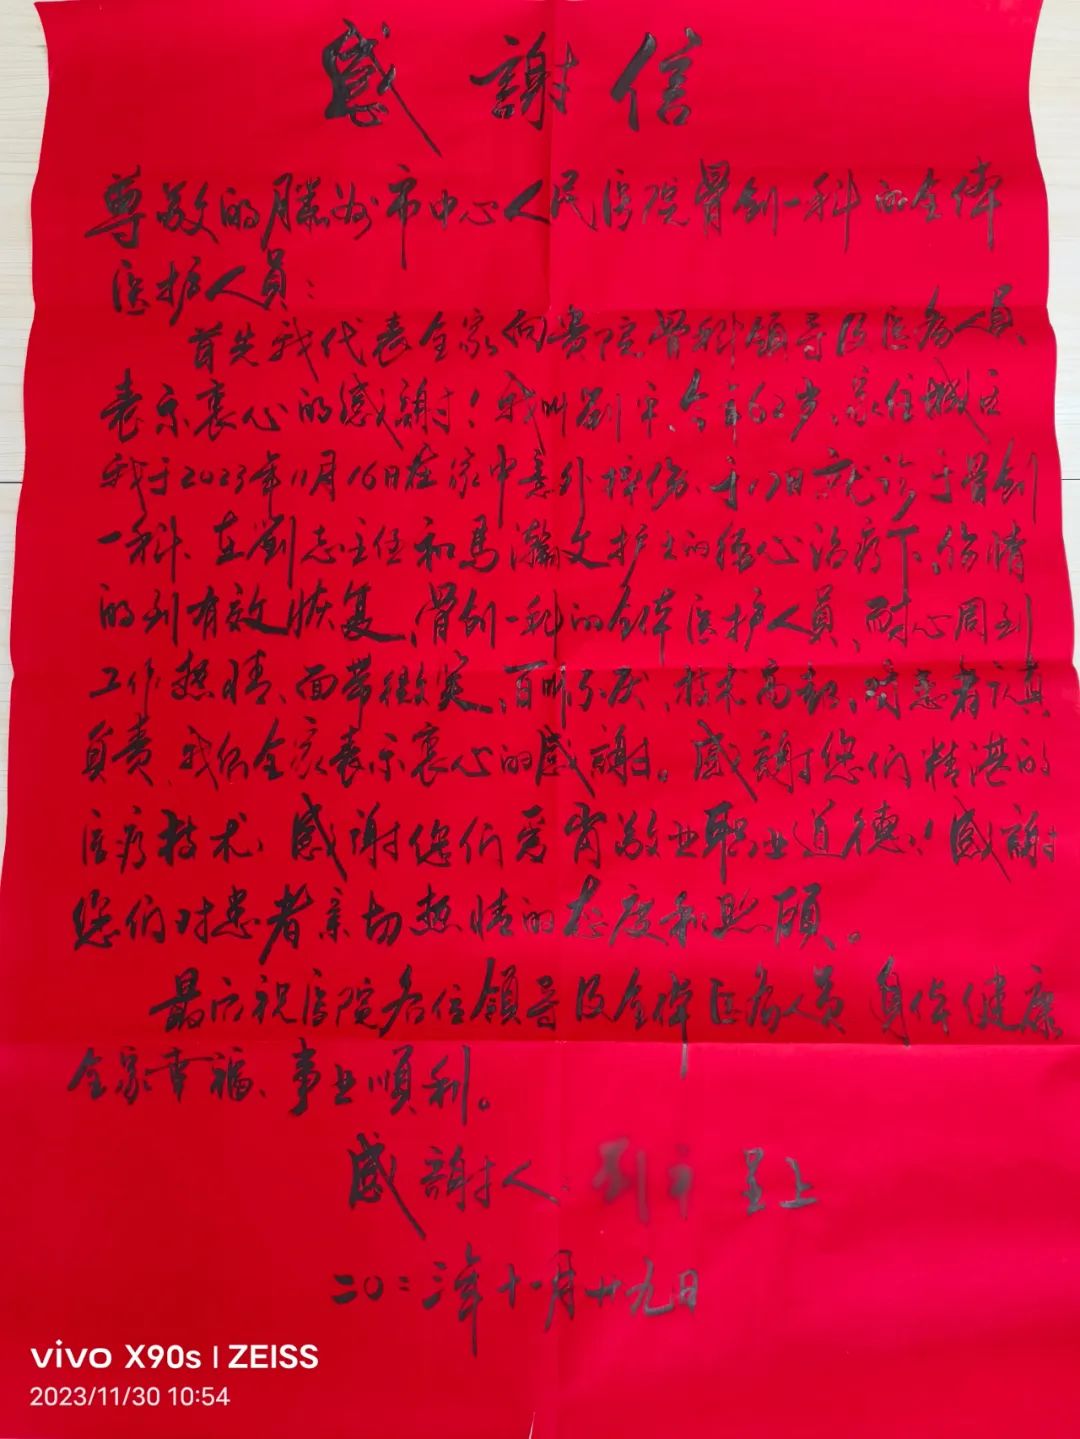 感謝信
尊敬的滕州市中心人民医院骨創一科的全体
医护人员：
首先我代表全家向贵院骨科領导及医务人员
表示衷心的感謝！我叫劉平、今年62岁、家住城区
我于2023年11月16日在家中意外摔伤、于17日就诊于骨創
一科、在劉志主任和馬瀚文护士的精心治疗下、伤情
的到有效恢复、骨創一科的全体医护人员、耐心周到
工作热情、面带微笑、百问不厌、技术高超、对患者认真
负责、我们全家表示衷心的感謝。感謝您们精湛的
医疗技术、感謝您们爱崗敬业职业道德！感謝
您们对患者亲切热情的态度和照顾。
最后祝医院各位領导及全体医务人员身体健康
全家幸福、事业順利。
感謝人： 呈上
二〇二三年十一月廿九日
vivo X90s | ZEISS
2023/11/30 10:54